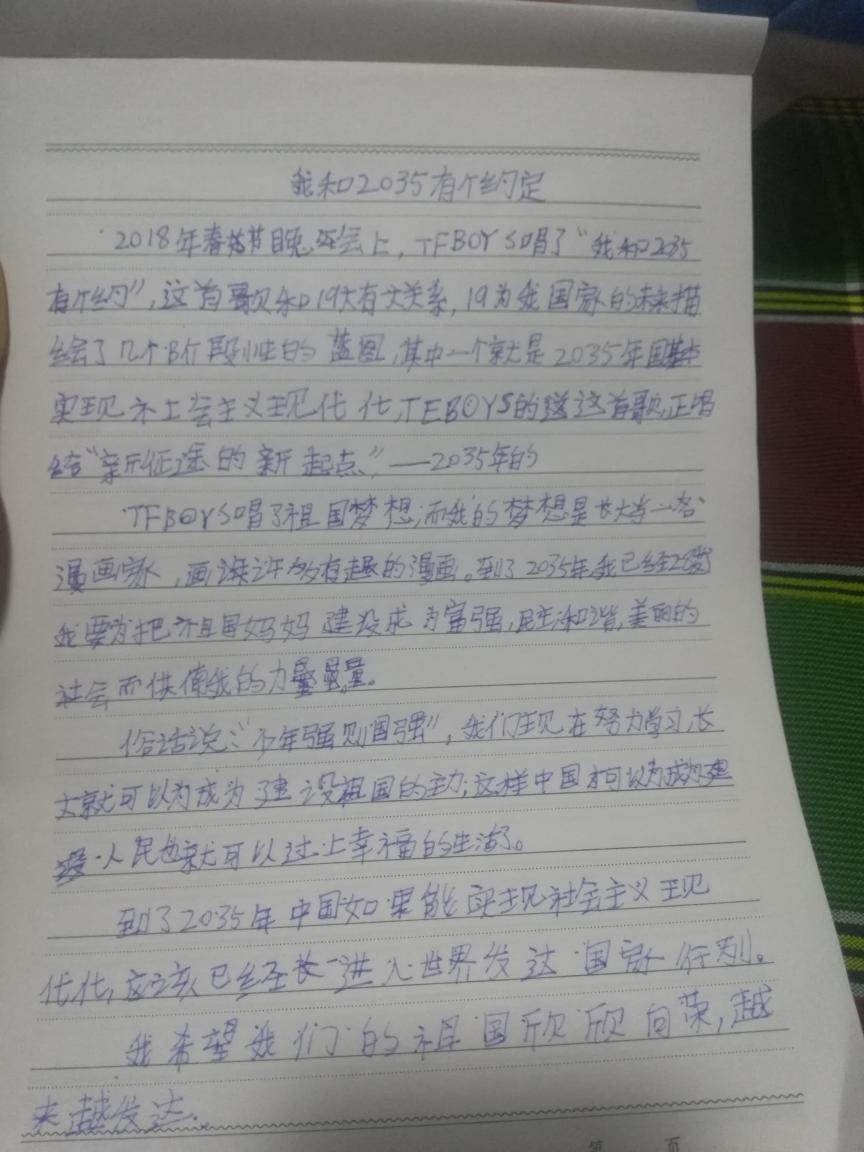 我和2035有个约定
2018年春节晚会上，TFBOYS唱了“我和2035
有个约”，这首歌和19大有大关系，19为我国家的未来描
绘了几个阶段性的蓝图，其中一个就是2035年国基本
实现社会主义现代化，TFBOYS的这首歌，正唱
给“新征途的新起点”——2035年的
TFBOYS唱了祖国梦想，而我的梦想是长大当一名
漫画家，画许许多有趣的漫画。到了2035年，我已经28岁
我要为把祖国妈妈建设成为富强，民主，和谐，美丽的
社会而供俺我的力量。
俗话说：“少年强则国强”，我们现在努力学习，长
大就可以为成为建设祖国的主力；这样中国才可以为成为
人民也就可以过上幸福的生活了。
到了2035年中国如果能实现社会主义现
代化，应该已经长进入世界发达国家行列。
我希望我们的祖国欣欣向荣，越
来越发达。
第 页